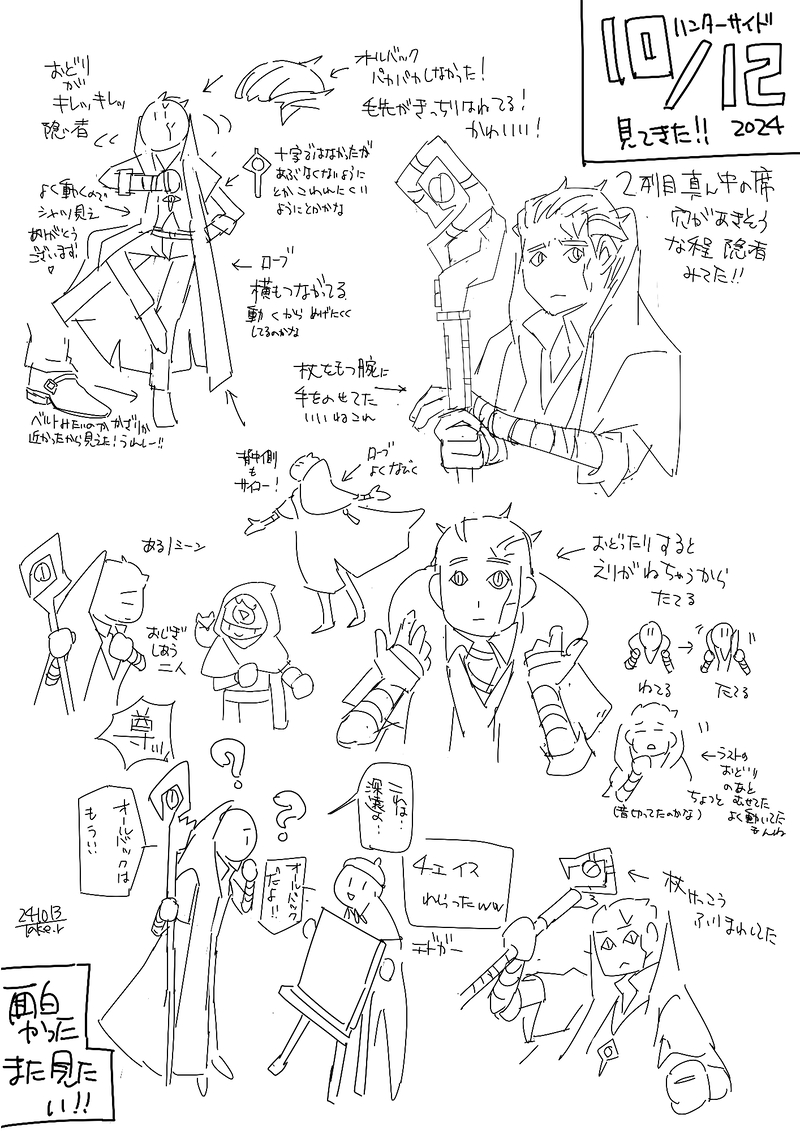 ハンターサイド
10/12
見てきた!! 2024
おどり
が
キレッキレッ
隠者
オールバック
パカパカしなかった!
毛先がきっちりはねてる!
かわいい!
十字ではなかったが
あぶなくないように
とか こわれにくい
ようにとかかな
よく動くので
シャツ見え
ありがとう
ございます
ローブ
横もつながってる
動くから めげにくく
してるのかな
2列目真ん中の席
穴があきそう
な程 隠者
みてた!!
杖をもつ腕に
手をのせてた
いいねこれ
ベルトみたいのかかざりが
近かったから見えた!うれしー!!
背中側
も
サイコー!
ローブ
よくなびく
あるノミーン
おじぎ
しあう
二人
おどったりすると
えりがねちゃうから
たてる
ねてる
たてる
ラストの
おどり
のあと
ちょっと むせてた
よく動いてた
もんね
(昔切ってたのかな)
尊ッ
オールバックは
もうい
こね…
深淵よ…
オールバック
だよ!!
4エイス
わらったww
エドガー
杖けっこう
ふりまわしてた
241013
Take.r
面白
かった
また見た
い!!